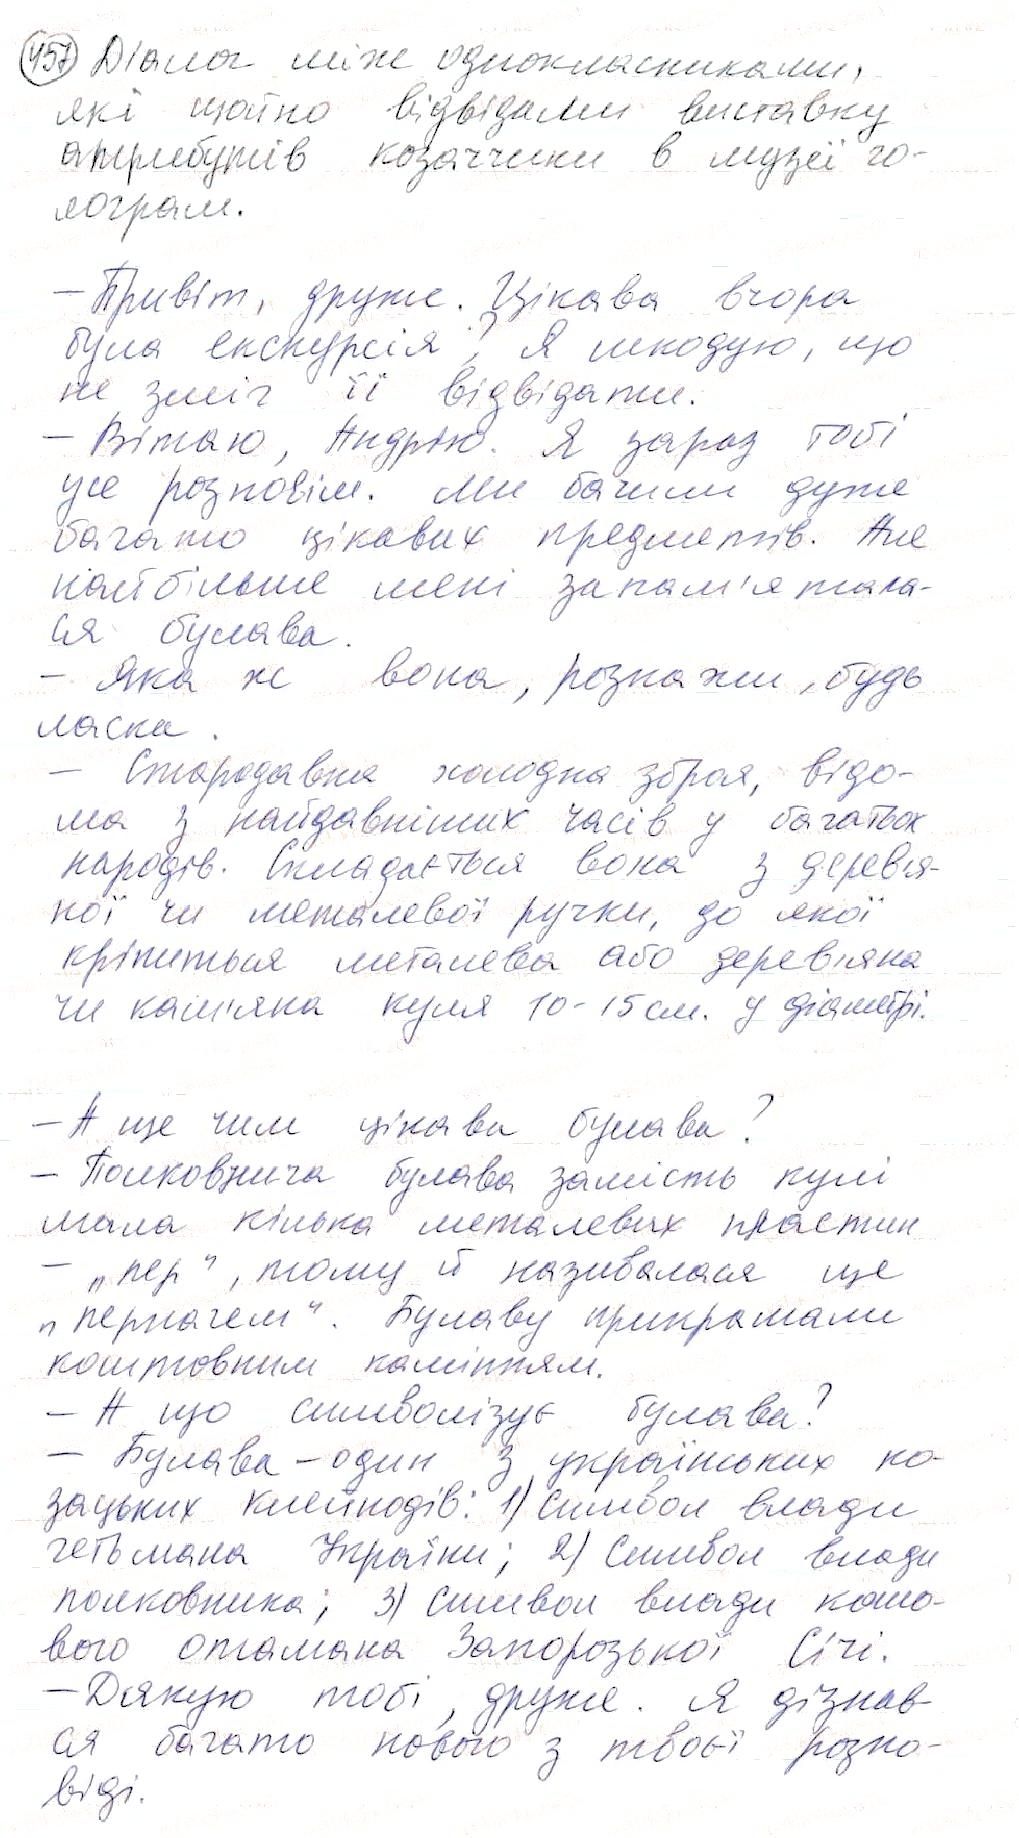 457 Діалог між однокласниками,
які щойно відвідали виставку
атрибутів козаччини в музеї го-
лограм.
– Привіт, друже. Цікава вчора
була екскурсія? Я шкодую, що
не зміг її відвідати.
– Вітаю, Андрію. Я зараз тобі
усе розповім. Ми бачили дуже
багато цікавих предметів. Але
найбільше мені запам'ятала-
ся булава.
– Яка ж вона, розкажи, будь
ласка.
– Стародавня холодна зброя, відо-
ма з найдавніших часів у багатьох
народів. Складається вона з дерев'я-
ної чи металевої ручки, до якої
кріпиться металева або дерев'яна
чи кам'яна куля 10-15 см. у діаметрі.
– А ще чим цікава булава?
– Полковнича булава замість кулі
мала кілька металевих пластин
– „пер“, тому й називалася ще
„перначем“. Булаву прикрашали
коштовним камінням.
– А що символізує булава?
– Булава – один з українських ко-
зацьких клейнодів: 1) символ влади
гетьмана України; 2) символ влади
полковника; 3) символ влади кошо-
вого отамана Запорозької Січі.
– Дякую тобі, друже. Я дізнав-
ся багато нового з твоєї розпо-
віді.